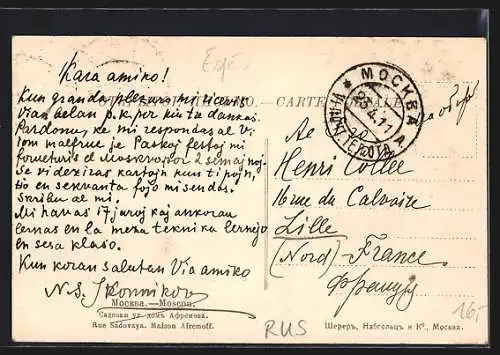 Kara amiko!
Kun granda plezuro mi ricevis
Vian belan p.k. per kiu tre dankas.
Pardonu, ke mi respondas al Vi
iom malfrue je Paskoj festoj mi
forveturis el Moskvo por 2 semajnoj.
Se vi deziras kartojn kun tipojn,
tio en sekvanta fojo mi sendas.
Skribu al mi.
Mi havas 17 jaroj kaj ankoraŭ
lernas en la meza teknika lernejo
en sesa klaso.
Kun koran salutan Via amiko
N. S. Skornikov
Москва.—Moscou.
Садовая ул. домъ Афремова.
Rue Sadovaya. Maison Afremoff.
CARTE
МОСКВА
4.11
Henri Collee
16 rue du Calvaire
Lille
(Nord) - France
Франція
Шереръ, Набгольцъ и Кº, Москва.
RUS
16,-